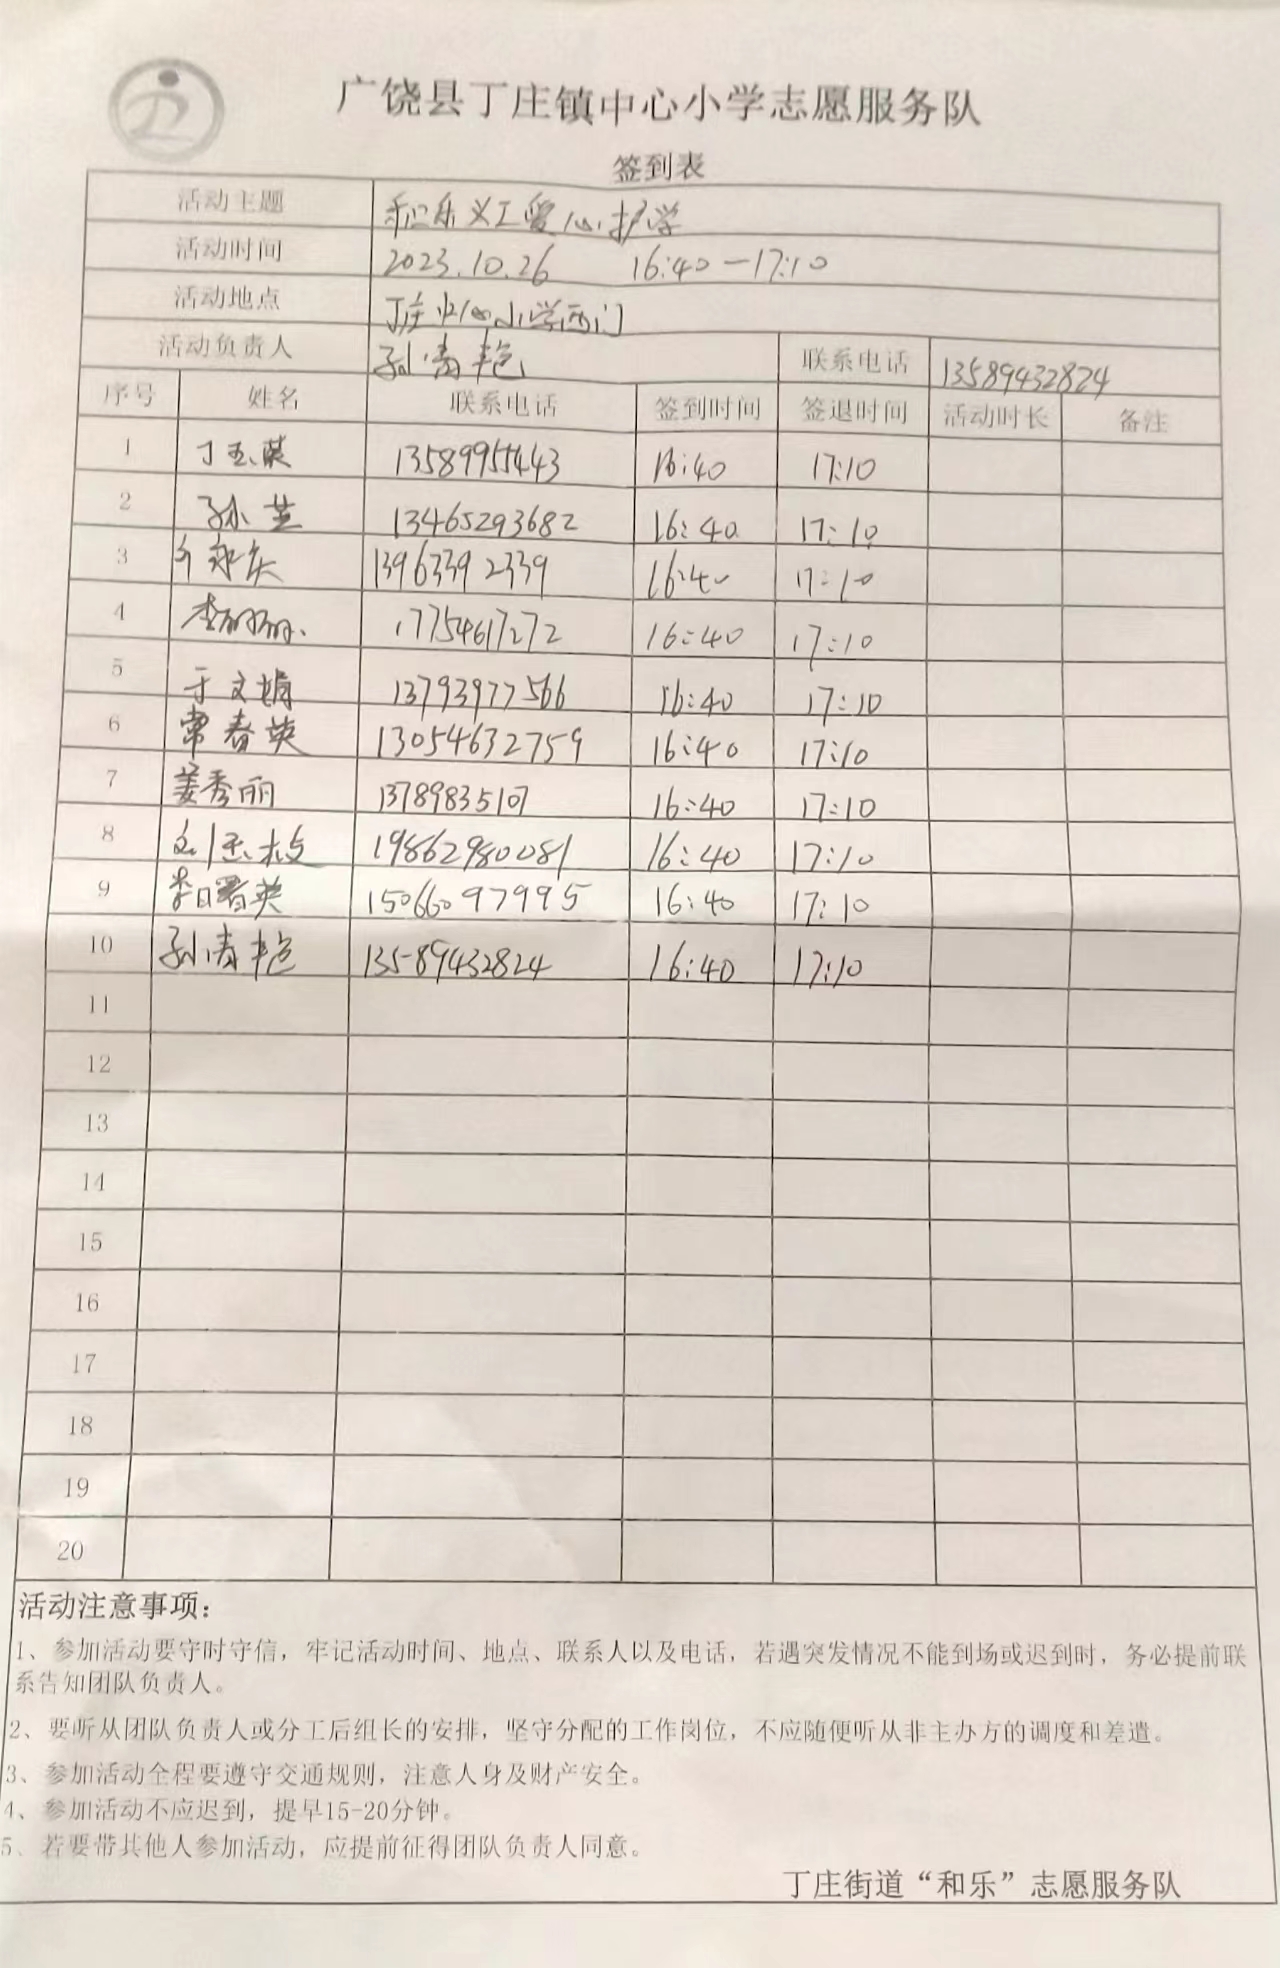 广饶县丁庄镇中心小学志愿服务队
签到表
活动主题 和乐义工爱心护学
活动时间 2023.10.26 16:40-17:10
活动地点 丁庄中心小学西门
活动负责人 孙清艳 联系电话 13589432824
序号 姓名 联系电话 签到时间 签退时间 活动时长 备注
1 丁玉英 13589955443 16:40 17:10
2 孙芝 13465293682 16:40 17:10
3 13963392339 16:40 17:10
4 李丽丽 17754617272 16:40 17:10
5 于文娟 13793977566 16:40 17:10
6 常春英 13054632759 16:40 17:10
7 姜秀丽 13789835107 16:40 17:10
8 刘玉枝 19862980081 16:40 17:10
9 李曙英 15066097995 16:40 17:10
10 孙清艳 13589432824 16:40 17:10
11
12
13
14
15
16
17
18
19
20
活动注意事项：
1、参加活动要守时守信，牢记活动时间、地点、联系人以及电话，若遇突发情况不能到场或迟到时，务必提前联
系告知团队负责人。
2、要听从团队负责人或分工后组长的安排，坚守分配的工作岗位，不应随便听从非主办方的调度和差遣。
3、参加活动全程要遵守交通规则，注意人身及财产安全。
4、参加活动不应迟到，提早15-20分钟。
5、若要带其他人参加活动，应提前征得团队负责人同意。
丁庄街道“和乐”志愿服务队